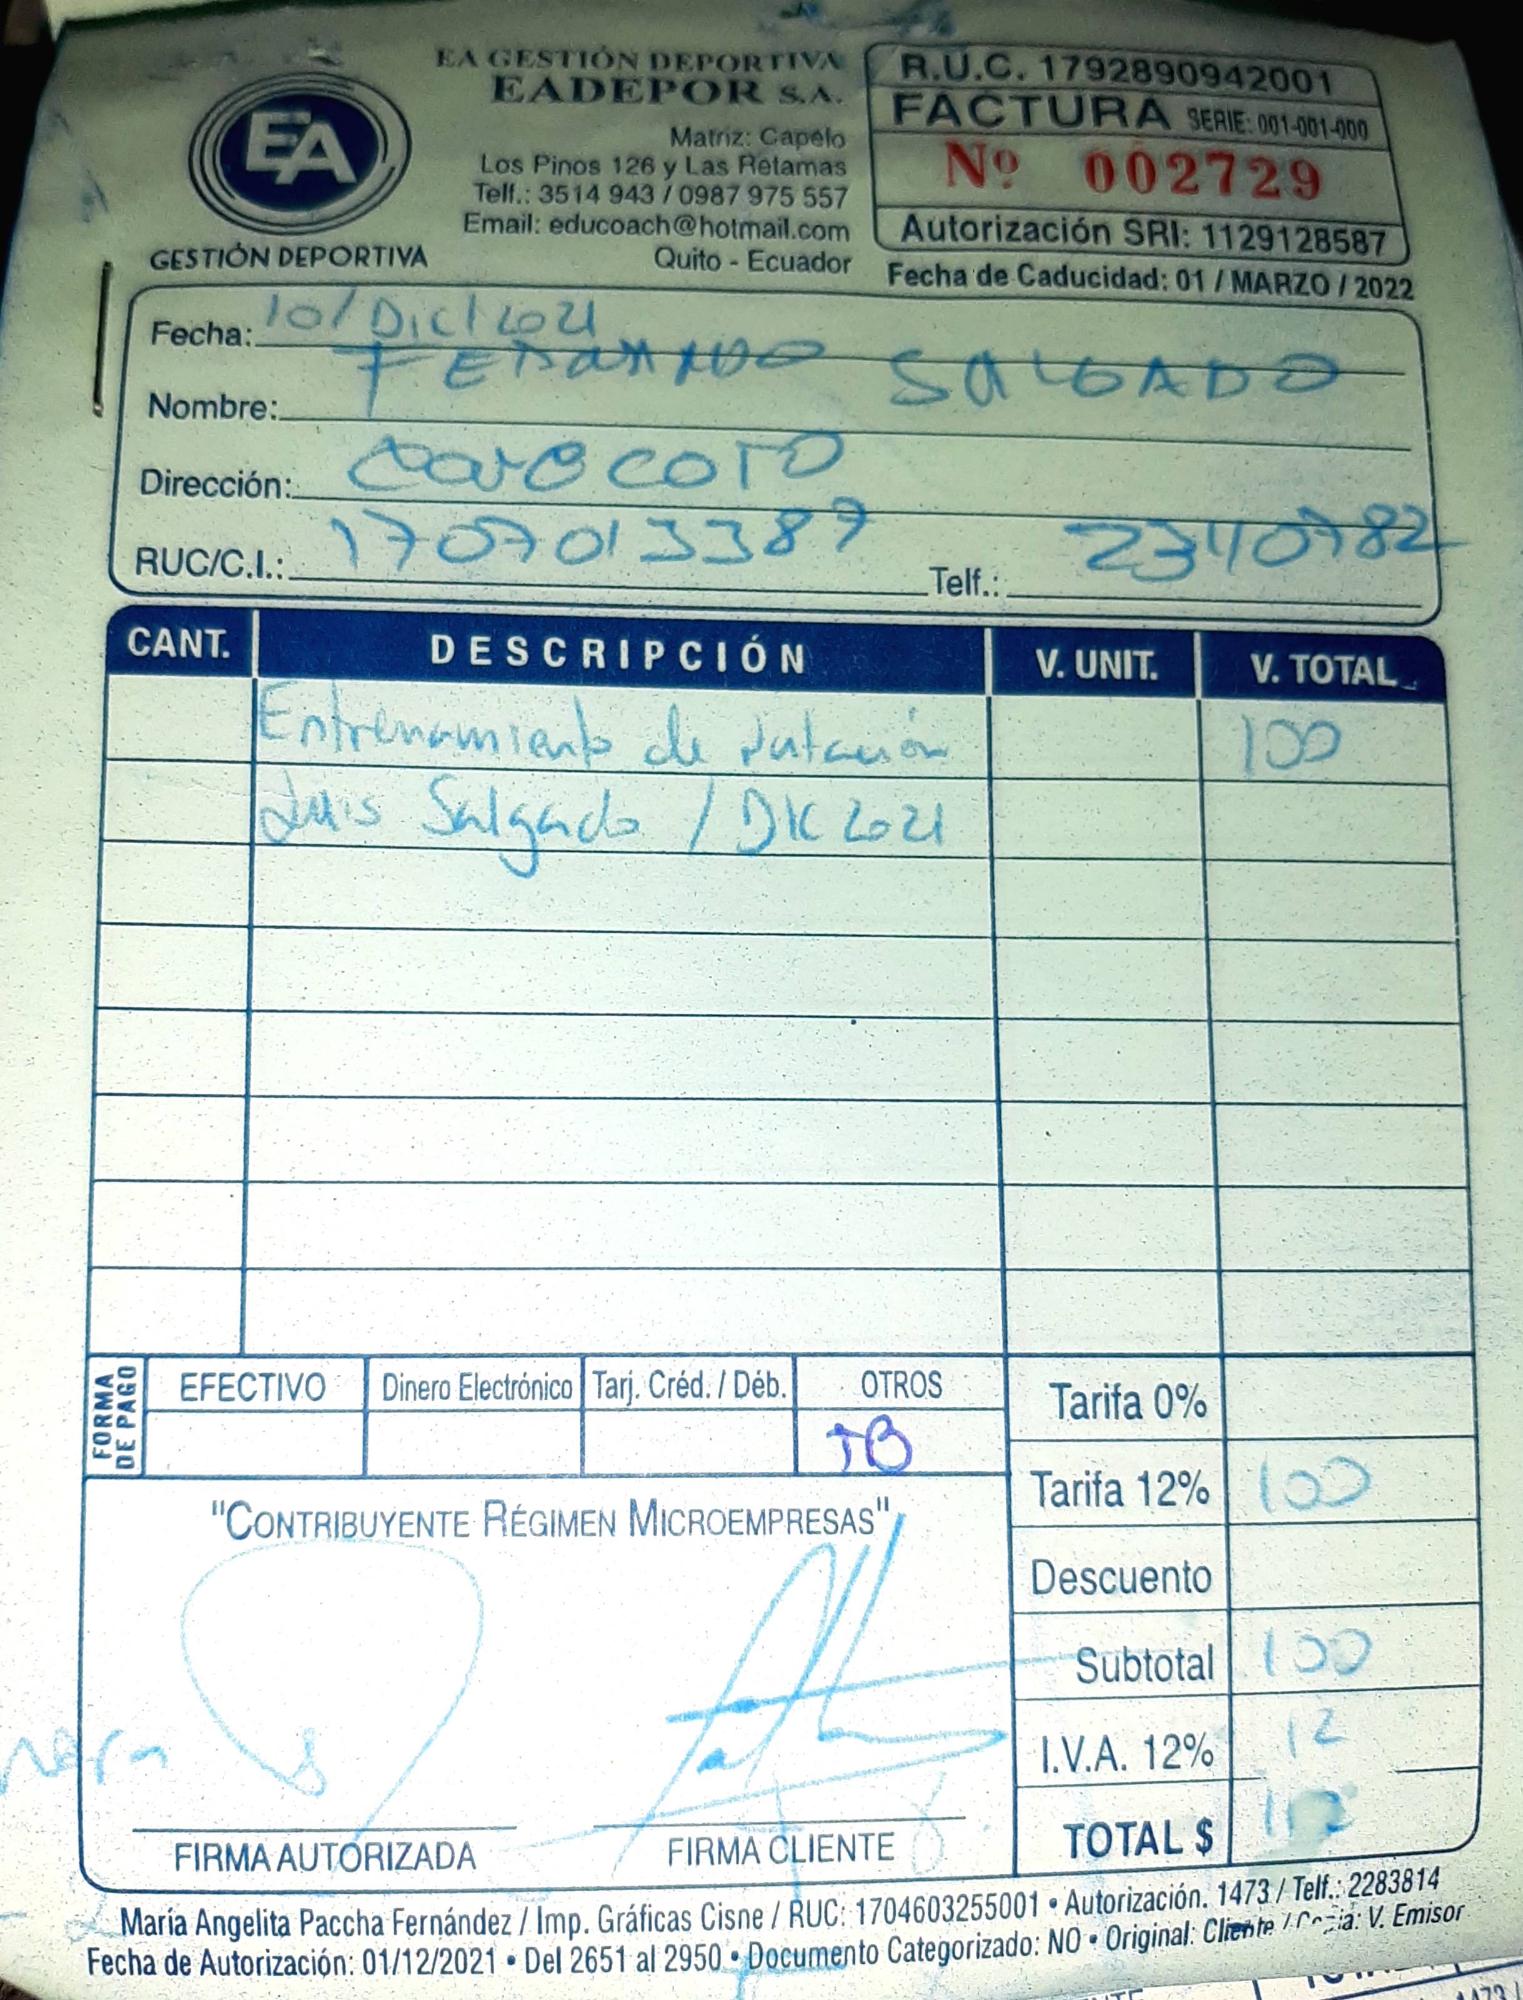 EA GESTIÓN DEPORTIVA
EADEPOR S.A.
Matriz: Capelo
Los Pinos 126 y Las Retamas
Telf.: 3514 943 / 0987 975 557
Email: educoach@hotmail.com
Quito - Ecuador
EA
GESTIÓN DEPORTIVA
R.U.C. 1792890942001
FACTURA SERIE: 001-001-000
Nº 002729
Autorización SRI: 1129128587
Fecha de Caducidad: 01 / MARZO / 2022
Fecha: 10/Dic/2021
Nombre: FERNANDO SALGADO
Dirección: CONOCOTO
RUC/C.I.: 1707013387 Telf.: 2340782
CANT. DESCRIPCIÓN V. UNIT. V. TOTAL
Entrenamiento de natación 100
Luis Salgado / DIC 2021
FORMA DE PAGO
EFECTIVO Dinero Electrónico Tarj. Créd. / Déb. OTROS
TB
Tarifa 0%
Tarifa 12% 100
Descuento
Subtotal 100
I.V.A. 12% 12
TOTAL $
"CONTRIBUYENTE RÉGIMEN MICROEMPRESAS"
FIRMA AUTORIZADA FIRMA CLIENTE
María Angelita Paccha Fernández / Imp. Gráficas Cisne / RUC: 1704603255001 • Autorización. 1473 / Telf.: 2283814
Fecha de Autorización: 01/12/2021 • Del 2651 al 2950 • Documento Categorizado: NO • Original: Cliente / Copia: V. Emisor